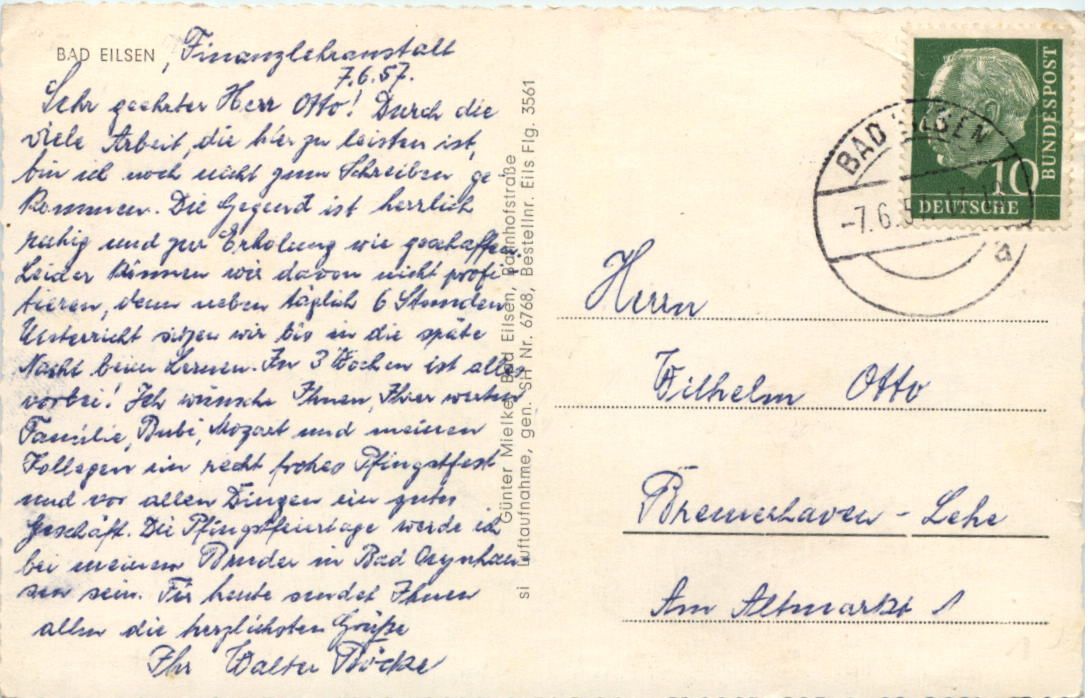 BAD EILSEN, Finanzlehranstalt
7.6.57.
Sehr geehrter Herr Otto! Durch die
viele Arbeit, die hier zu leisten ist,
bin ich noch nicht zum Schreiben ge
kommen. Die Gegend ist herrlich
ruhig und zur Erholung wie geschaffen.
Leider können wir davon nicht profi-
tieren, denn neben täglich 6 Stunden
Unterricht sitzen wir bis in die späte
Nacht beim Lernen. In 3 Wochen ist alles
vorbei! Ich wünsche Ihnen, Ihrer werten
Familie, Bubi, Mozart und meinen
Kollegen ein recht frohes Pfingstfest
und vor allen Dingen ein gutes
Geschäft. Die Pfingstfeiertage werde ich
bei meinem Bruder in Bad Oeynhau
sen sein. Für heute sendet Ihnen
allen die herzlichsten Grüße
Ihr Walter Böcke
Günter Mielke, Bad Eilsen, Bahnhofstraße
si Luftaufnahme, gen. SH Nr. 6768, Bestellnr. Eils Flg. 3561
BUNDESPOST
10
DEUTSCHE
BAD EILSEN
-7.6.57
a
Herrn
Wilhelm Otto
Bremerhaven-Lehe
Am Altmarkt 1